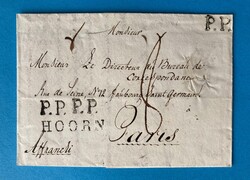 P.P.
Monsieur
Monsieur Le Directeur du Bureau de
Correspondance
Rue de Seine, N°12 Fauxbourg Saint Germain
P.P.P.P.
HOORN
Paris
Affranch